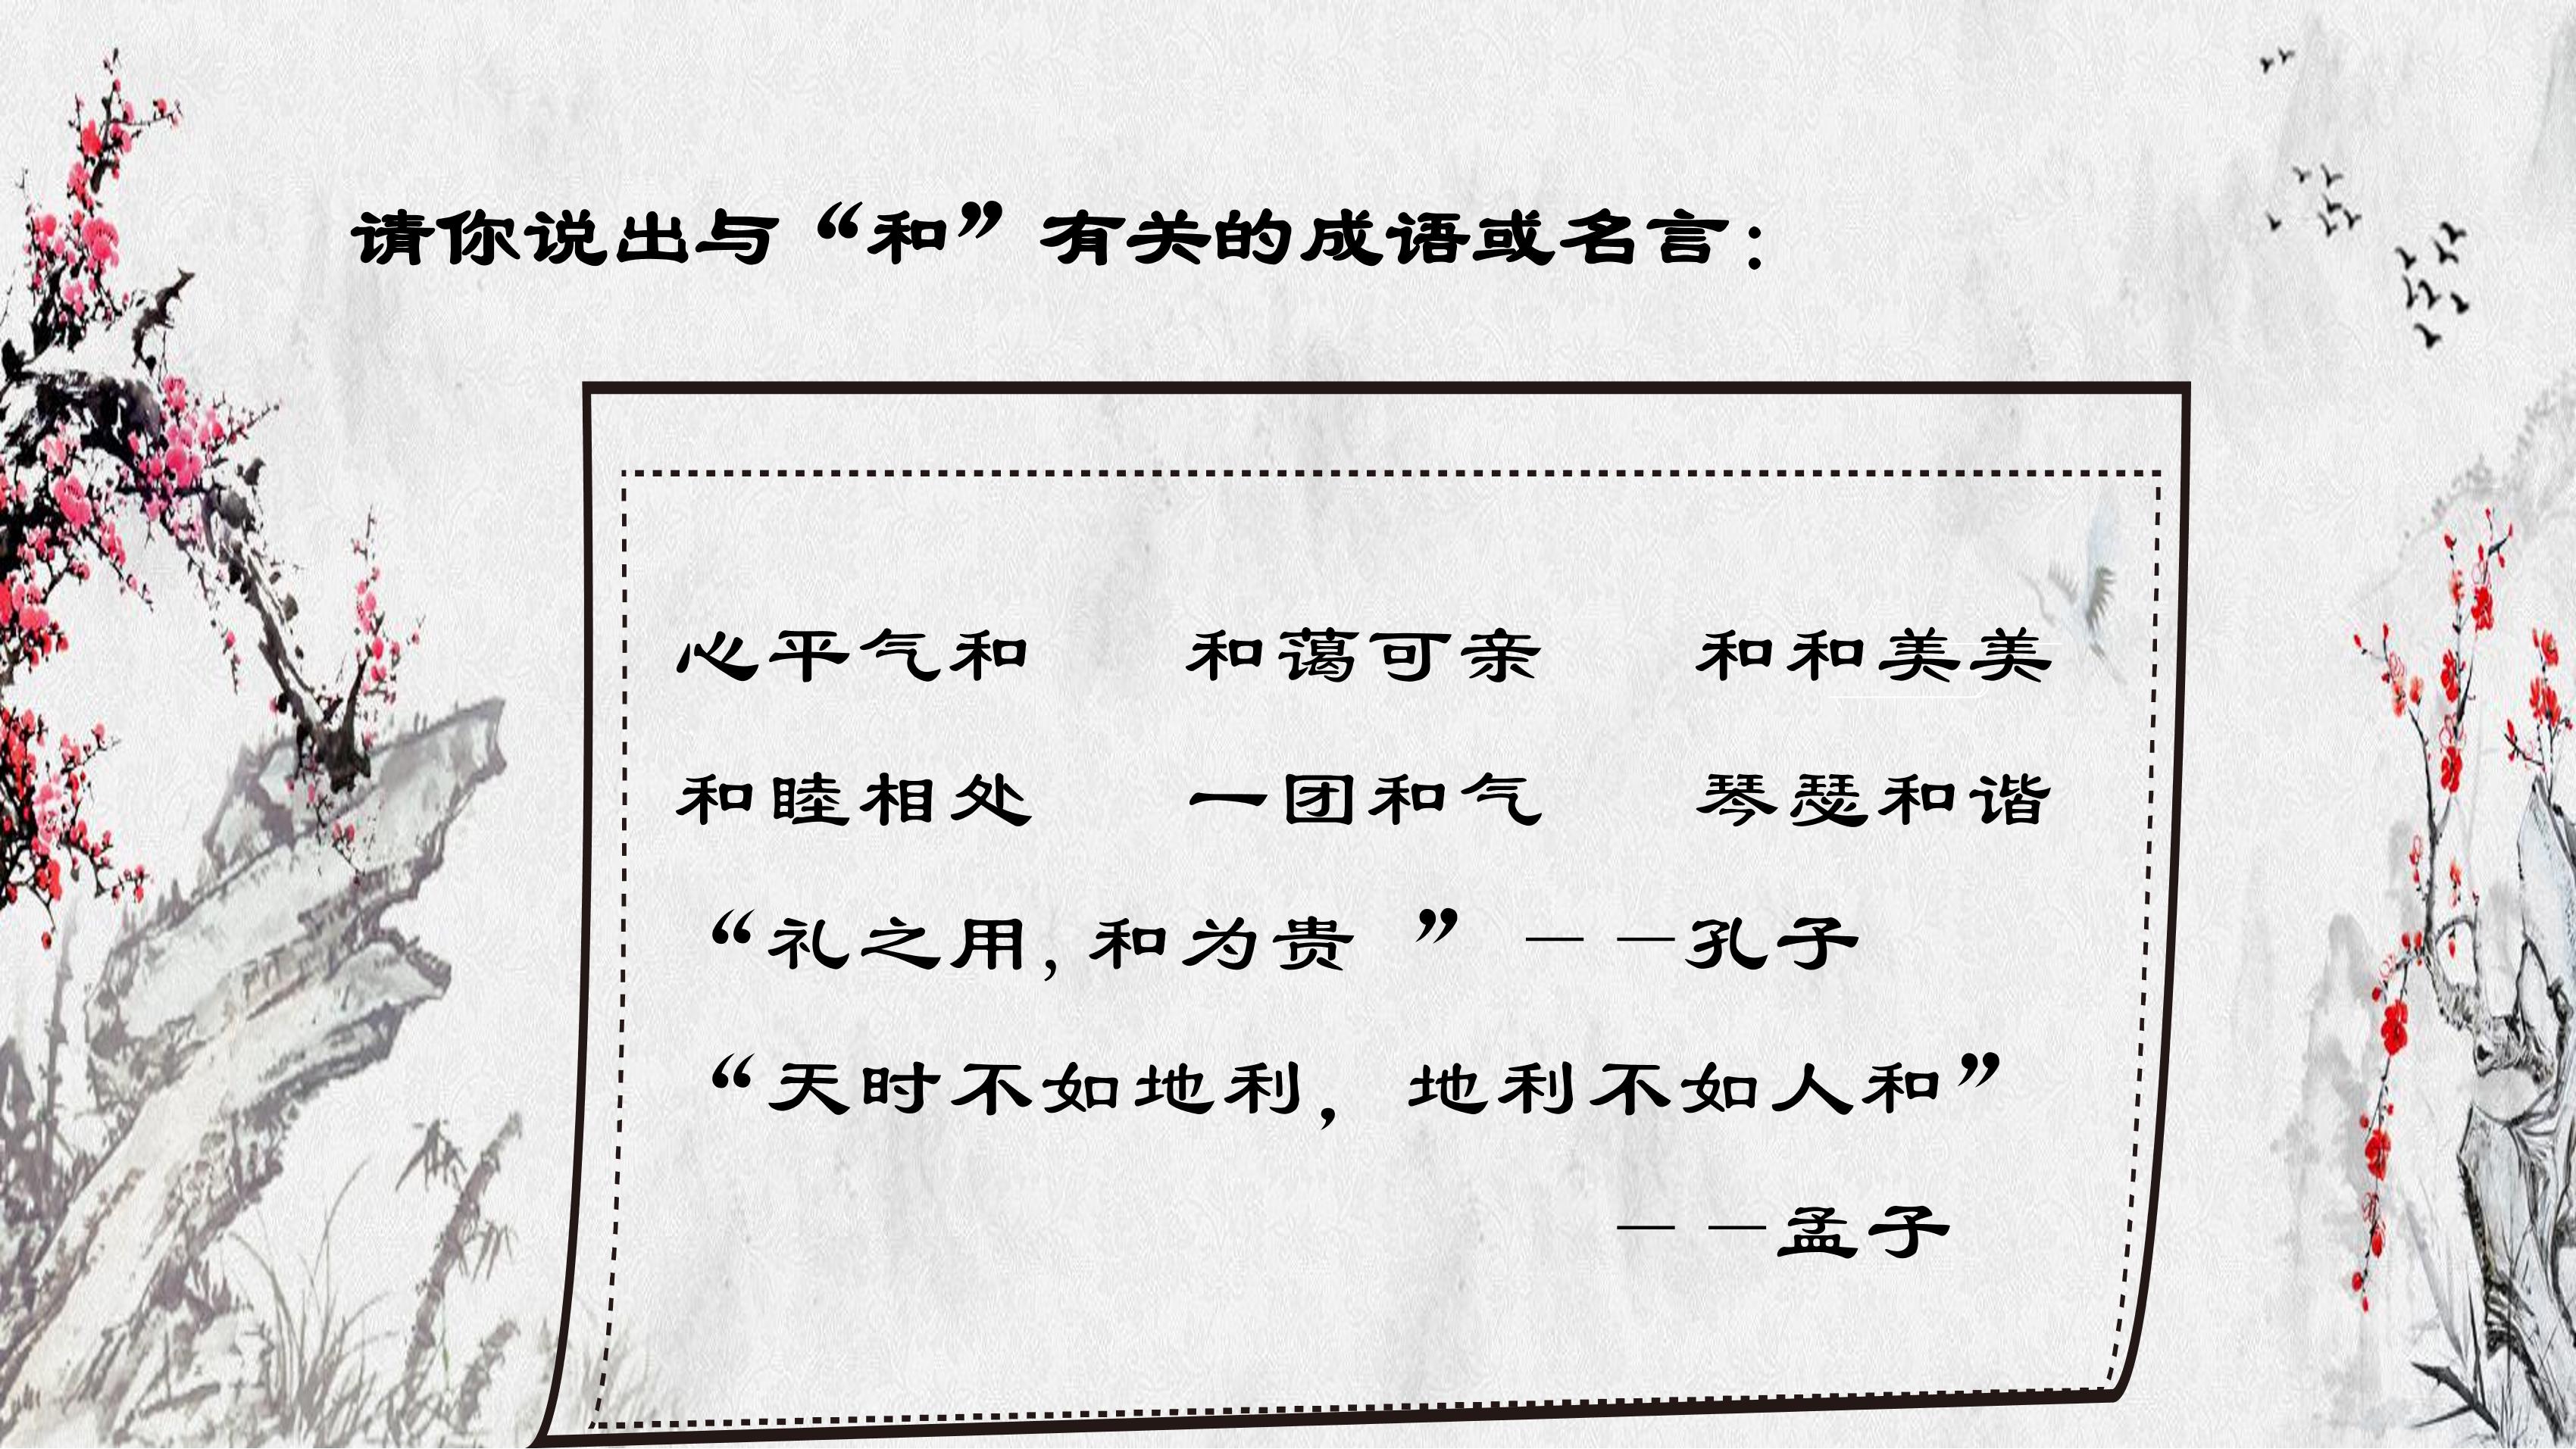 请你说出与“和”有关的成语或名言：
心平气和 和蔼可亲 和和美美
和睦相处 一团和气 琴瑟和谐
“礼之用，和为贵 ” — —孔子
“天时不如地利，地利不如人和”
— —孟子